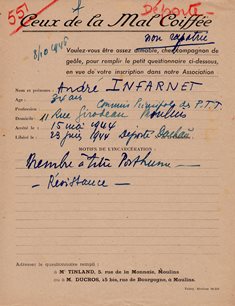 551 Déporté
Ceux de la Mal Coiffée
non rapatrié
8/10 1945
Voulez-vous être assez aimable, cher compagnon de
geôle, pour remplir le petit questionnaire ci-dessous,
en vue de votre inscription dans notre Association :
Nom et prénoms : André INFARNET
Age : 24 ans
Profession : Commis P.T.T.
Domicile : 11 Rue Girodeau Moulins
Arrêté le : 15 mai 1944
Libéré le : 23 juin 1944 Déporté Dachau
MOTIFS DE L'INCARCÉRATION :
Membre à titre Posthume -
- Résistance -
Adresser le questionnaire rempli :
à Mr TINLAND, 5, rue de la Monnaie, Moulins
ou à M. DUCROS, 15 bis, rue de Bourgogne, à Moulins.